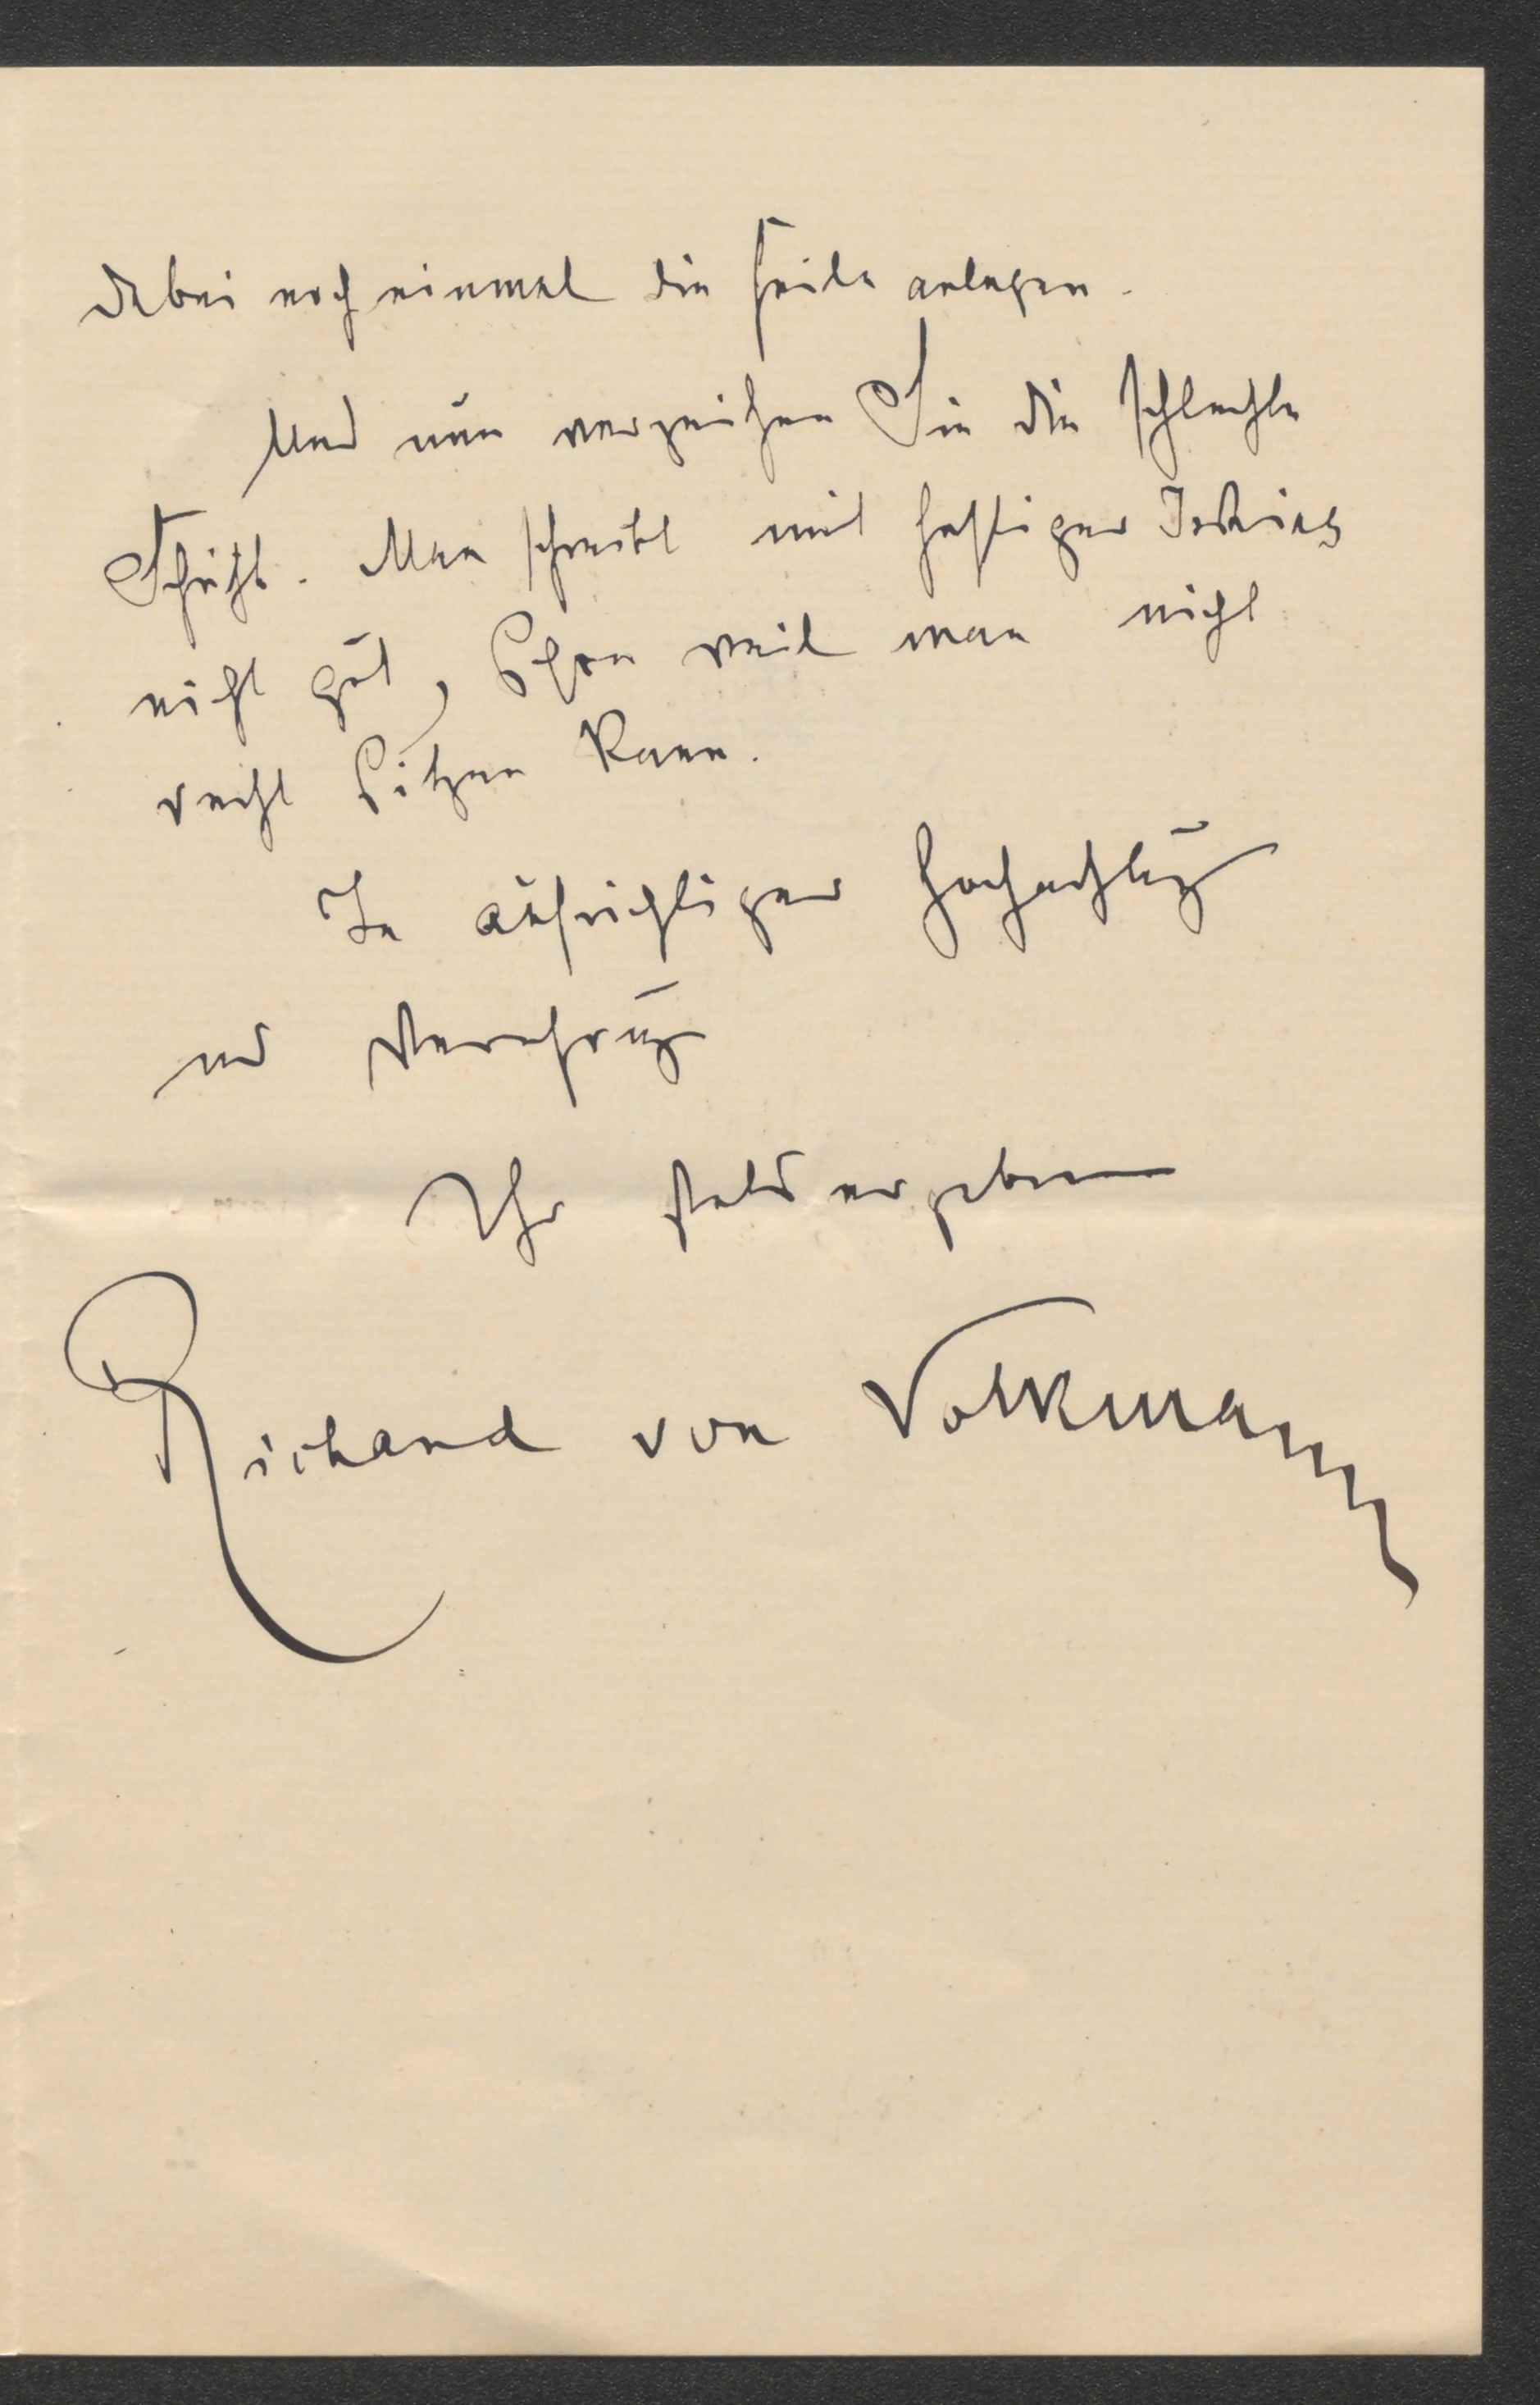 dabei noch einmal die Feile anlegen.
Und nun verzeihen Sie die schlechte
Schrift. Man schreibt mit heftiger Ischias
nicht gut, schon weil man nicht
recht sitzen kann.
In aufrichtiger Hochachtung
und Verehrung
Ihr stets ergebener
Richard von Volkmann